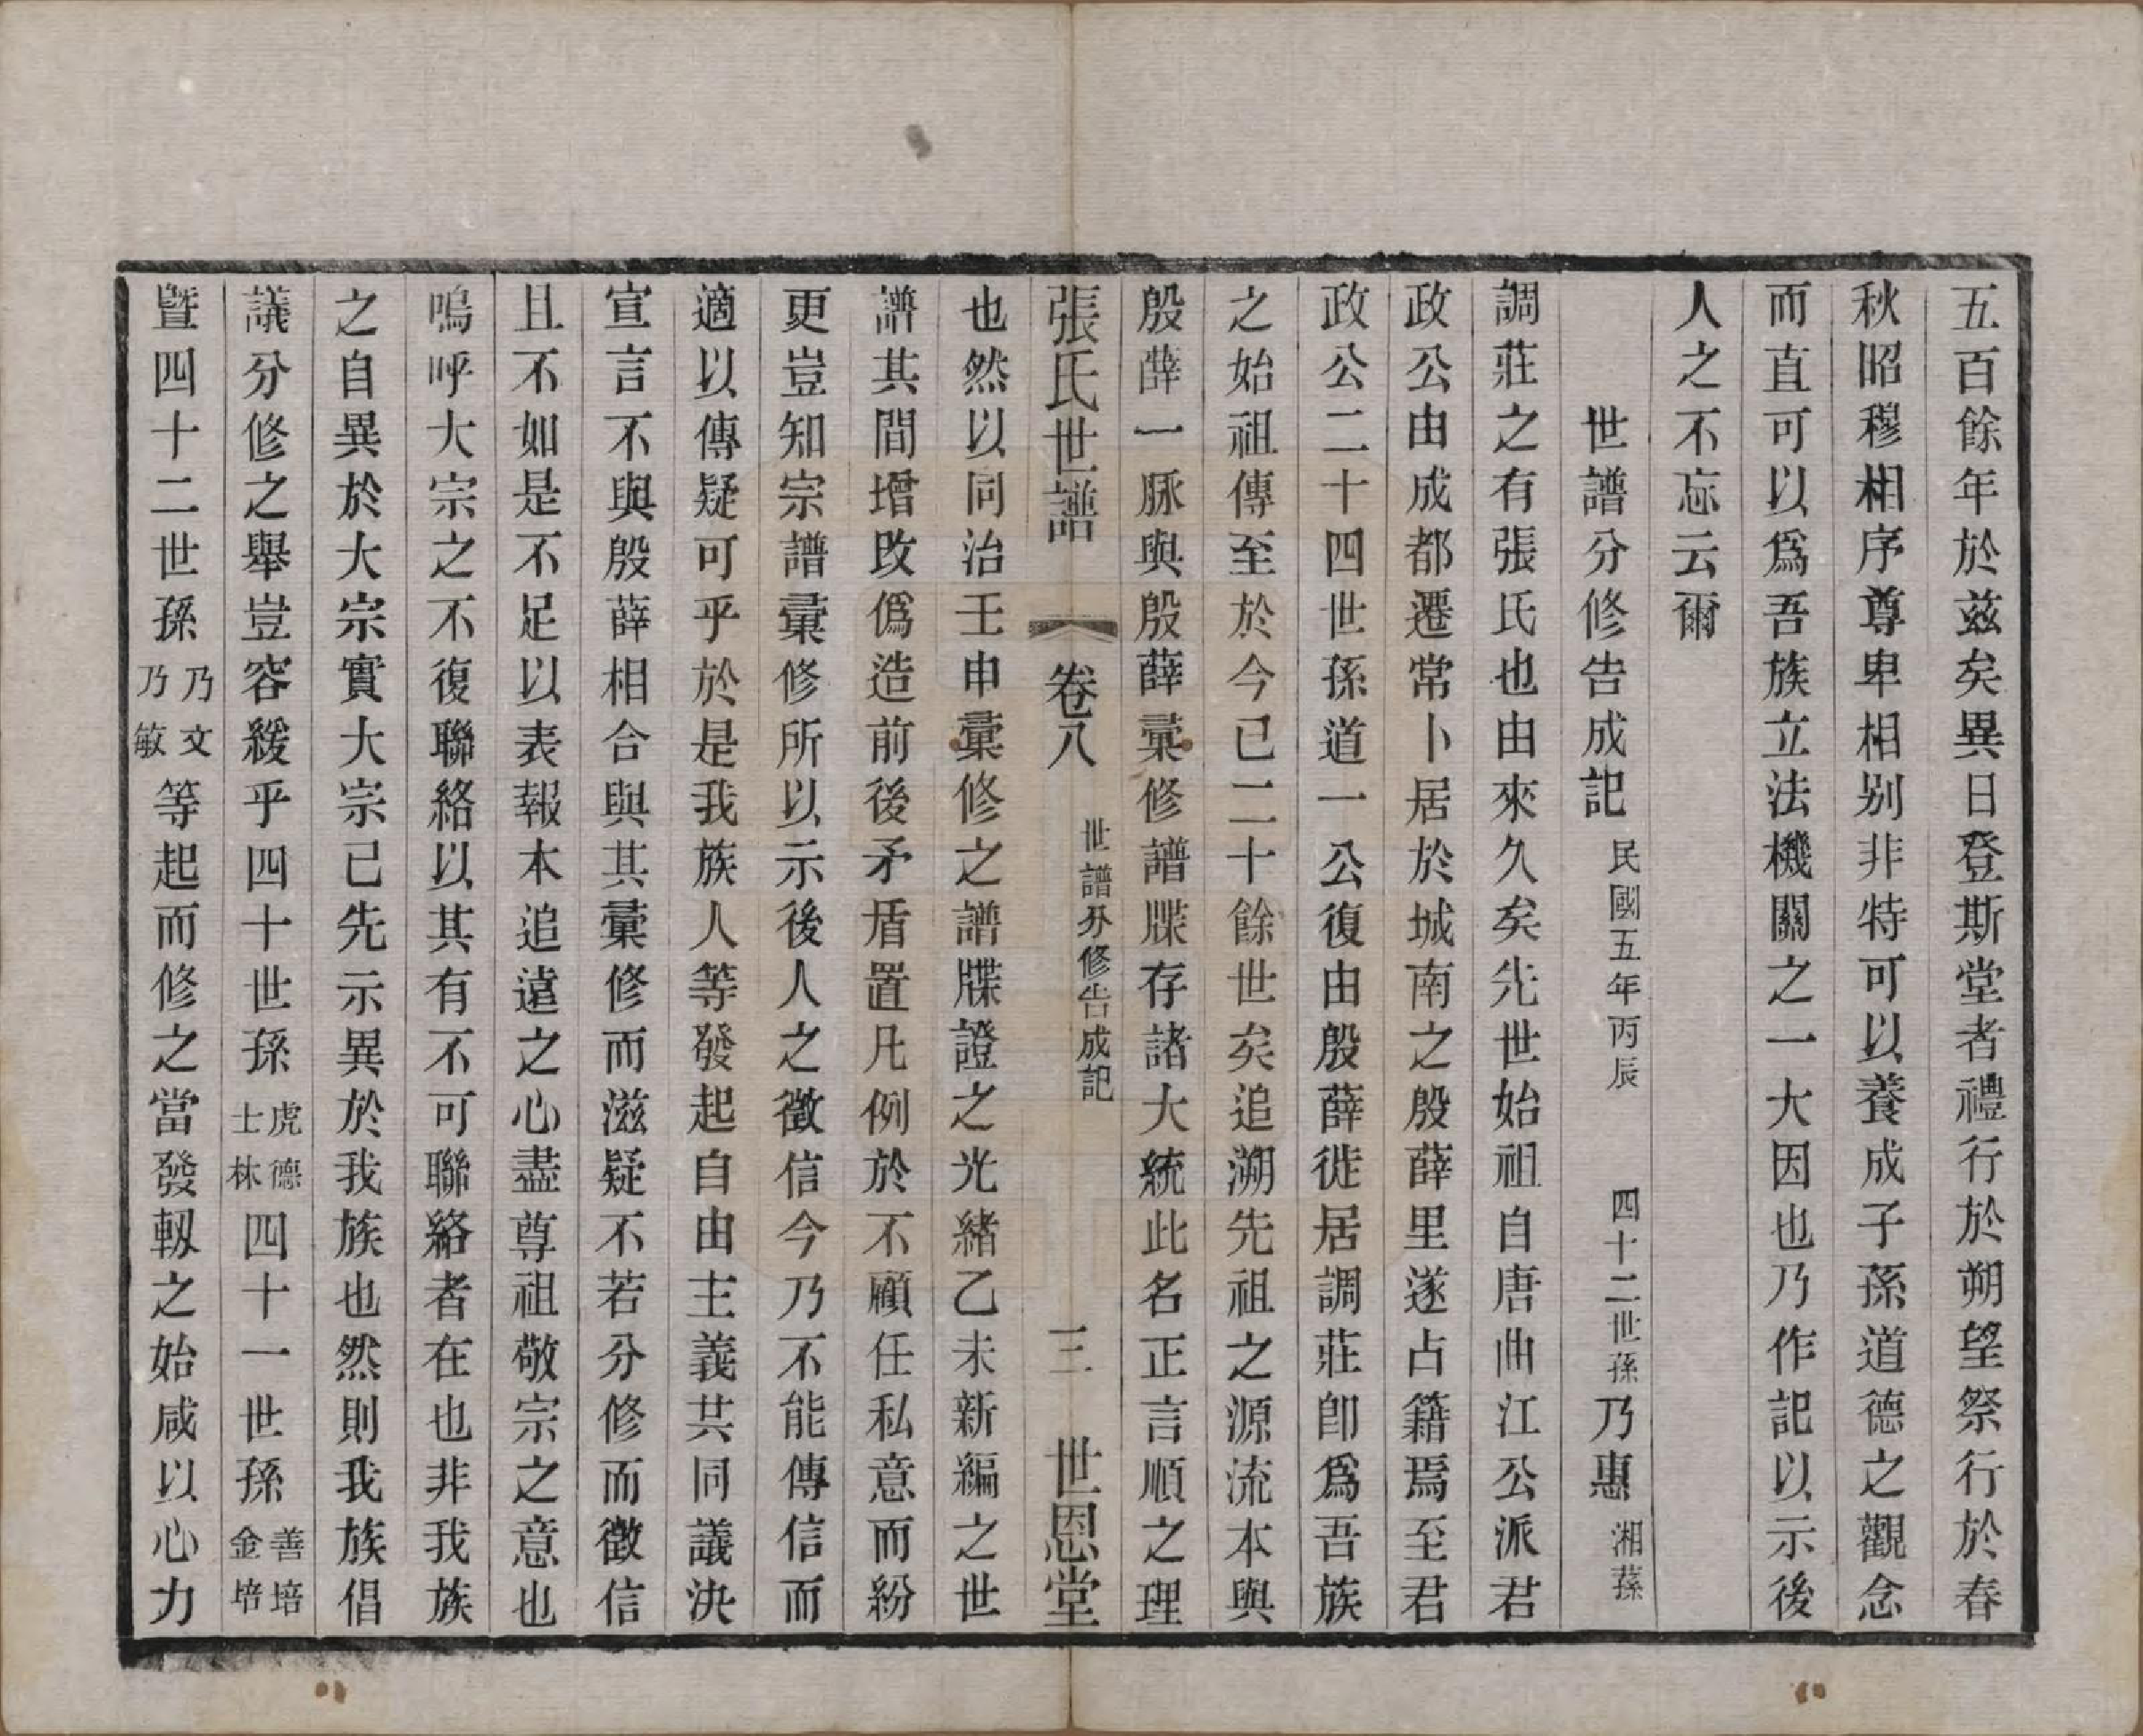 五百餘年於茲矣異日登斯堂者禮行於朔望祭行於春
秋昭穆相序尊卑相别非特可以養成子孫道德之觀念
而直可以爲吾族立法機關之一大因也乃作記以示後
人之不忘云爾
世譜分修告成記 民國五年丙辰 四十二世孫乃惠 湘蓀
調莊之有張氏也由來久矣先世始祖自唐曲江公派君
政公由成都遷常卜居於城南之殷薛里遂占籍焉至君
政公二十四世孫道一公復由殷薛徙居調莊卽爲吾族
之始祖傳至於今已二十餘世矣追溯先祖之源流本與
殷薛一脉與殷薛彙修譜牒存諸大統此名正言順之理
張氏世譜 卷八 世譜分修告成記 三 世恩堂
也然以同治壬申彙修之譜牒證之光緒乙未新編之世
譜其間增改僞造前後矛盾置凡例於不顧任私意而紛
更豈知宗譜彙修所以示後人之徵信今乃不能傳信而
適以傳疑可乎於是我族人等發起自由主義共同議決
宣言不與殷薛相合與其彙修而滋疑不若分修而徵信
且不如是不足以表報本追遠之心盡尊祖敬宗之意也
嗚呼大宗之不復聯絡以其有不可聯絡者在也非我族
之自異於大宗實大宗已先示異於我族也然則我族倡
議分修之舉豈容緩乎四十世孫虎德士林四十一世孫善培金培
暨四十二世孫乃文乃敏等起而修之當發軔之始咸以心力